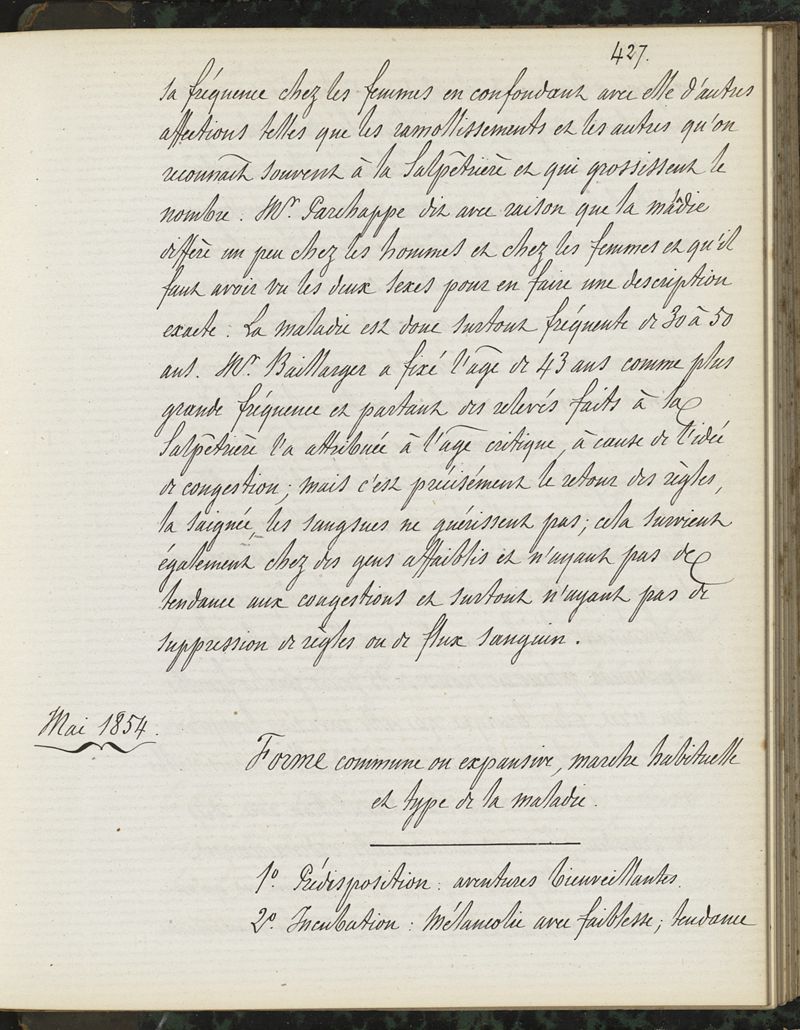 427.
sa fréquence chez les femmes en confondant avec elle d'autres
affections telles que les ramollissements et les autres qu'on
reconnaît souvent à la Salpêtrière et qui grossissent le
nombre. Mr. Parchappe dit avec raison que la madie
diffère un peu chez les hommes et chez les femmes et qu'il
faut avoir vu les deux sexes pour en faire une description
exacte. La maladie est donc surtout fréquente de 30 à 50
ans. Mr. Baillarger a fixé l'âge de 43 ans comme plus
grande fréquence et partant des relevés faits à la
Salpêtrière l'a attribuée à l'âge critique, à cause de l'idée
de congestion; mais c'est précisément le retour des règles,
la saignée, les sangsues ne guérissent pas; cela survient
également chez des gens affaiblis et n'ayant pas de
tendance aux congestions et surtout n'ayant pas de
suppression de règles ou de flux sanguin.
Mai 1854.
Forme commune ou expansive, marche habituelle
et type de la maladie.
1º. Prédisposition: aventures bienveillantes.
2º. Incubation: Mélancolie avec faiblesse; tendance